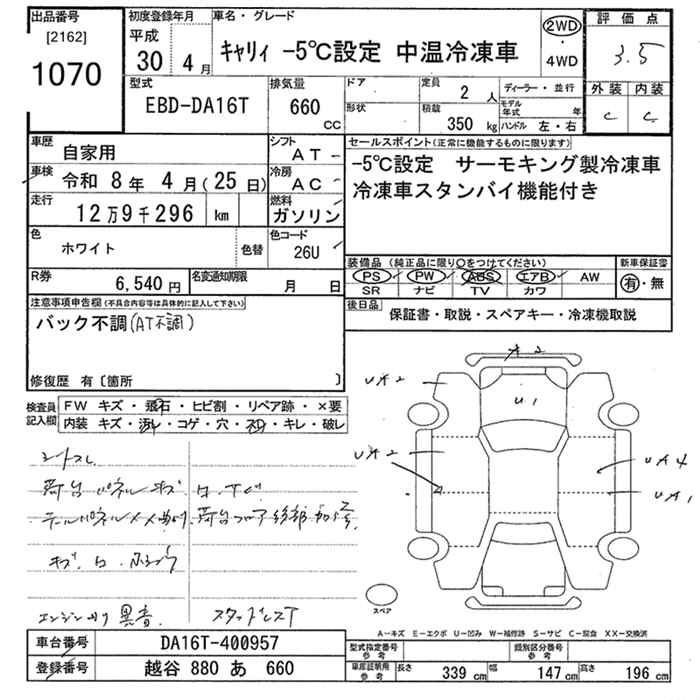 出品番号
[2162]
1070
初度登録年月
平成
30 4 月
車名・グレード
ｷｬﾘｨ -5℃設定 中温冷凍車
2WD
・
4WD
評価点
3.5
外装 内装
C C
型式
EBD-DA16T
排気量
660
CC
ドア
形状
定員
2 人
積載
350 kg
ディーラー・並行
モデル年式 年
ハンドル 左・右
車歴
自家用
シフト
AT
車検 令和 8 年 4 月(25 日)
冷房
AC
走行
12万9千296 km
燃料
ガソリン
色
ホワイト
色替
色コード
26U
R券
6,540 円
名変通知期限
月 日
セールスポイント(正常に機能するものに限ります)
-5℃設定 サーモキング製冷凍車
冷凍車スタンバイ機能付き
装備品 (純正品に限り○をつけてください)
PS PW ABS エアB AW
SR ナビ TV カワ
新車保証書
有・無
後日品
保証書・取説・スペアキー・冷凍機取説
注意事項申告欄(不具合内容等は具体的に記入して下さい)
バック不調(AT不調)
修復歴 有〔箇所 〕
検査員記入欄
FW キズ・飛石・ヒビ割・リペア跡・×要
内装 キズ・汚れ・コゲ・穴・スレ・キレ・破レ
シートスレ
荷台パネルキズ
キズ
エンジン 異音
スタッドレスT
A2
UA2
U1
UA2
UA4
UA1
スペア
A-キズ E-エクボ U-凹み W-補修跡 S-サビ C-腐食 XX-交換済
車台番号
DA16T-400957
登録番号
越谷 880 あ 660
型式指定番号
参考
類別区分番号
参考
車庫証明用
参考
長さ 339 cm 幅 147 cm 高さ 196 cm